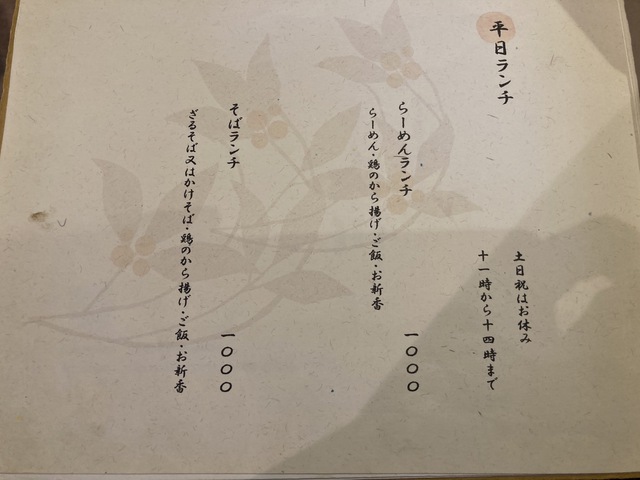 平日ランチ
土日祝はお休み
十一時から十四時まで
らーめんランチ 一〇〇〇
らーめん・鶏のから揚げ・ご飯・お新香
そばランチ 一〇〇〇
ざるそば又はかけそば・鶏のから揚げ・ご飯・お新香